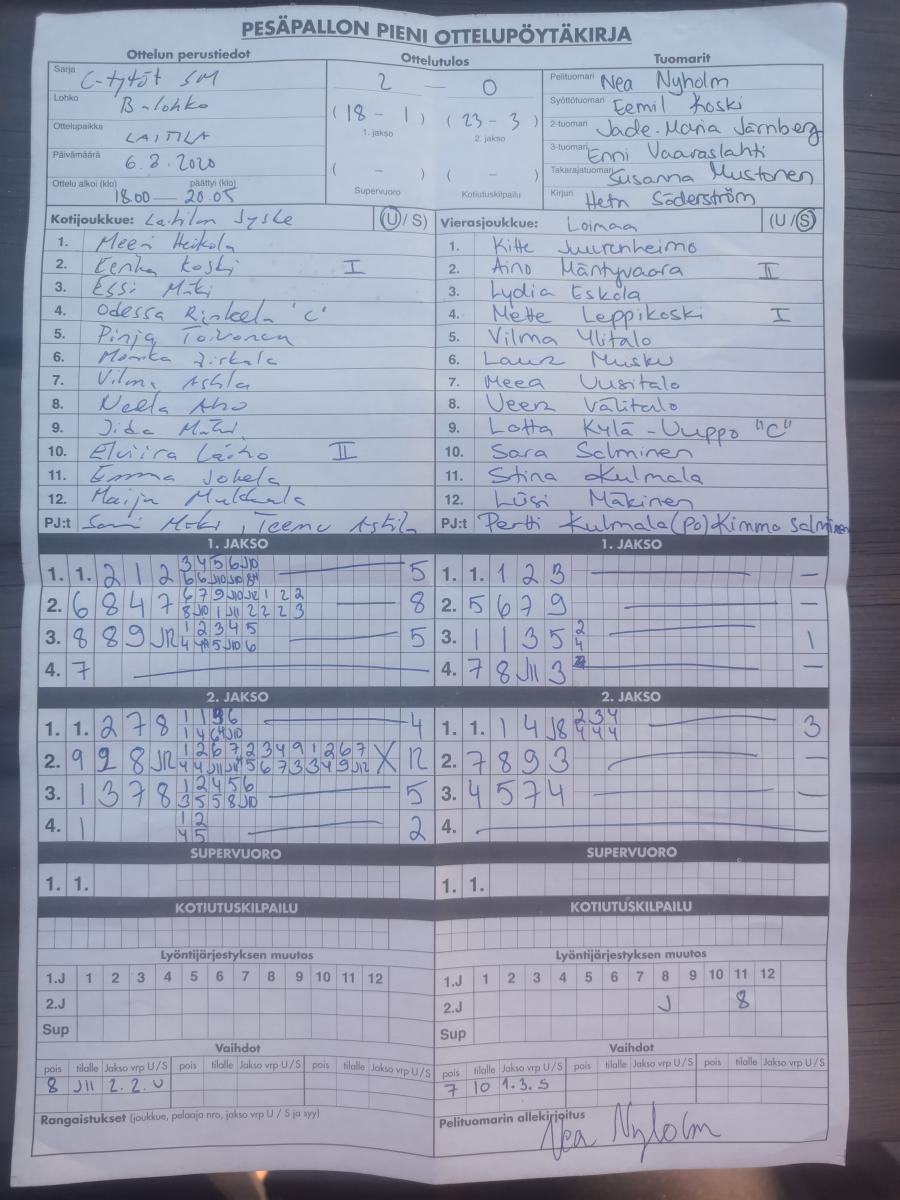 PESÄPALLON PIENI OTTELUPÖYTÄKIRJA
Ottelun perustiedot
Sarja C-tytöt SM
Lohko B-lohko
Ottelupaikka LAITILA
Päivämäärä 6.8.2020
Ottelu alkoi (klo) päättyi (klo)
18.00 — 20.05
Ottelutulos
2 — 0
(18 - 1) (23 - 3)
1. jakso 2. jakso
( - ) ( - )
Supervuoro Kotiutuskilpailu
Tuomarit
Pelituomari Nea Nyholm
Syöttötuomari Eemil Koski
2-tuomari Jade-Maria Järnberg
3-tuomari Enni Vaaraslahti
Takarajatuomari Susanna Mustonen
Kirjuri Heta Söderström
Kotijoukkue: Laitilan Jyske (U/S)
1. Meeri Heikola
2. Eerika Koski I
3. Essi Mäki
4. Odessa Rinkeela "C"
5. Pinja Toivonen
6.
7. Vilma Astila
8. Neella Aho
9. Iida Mäki
10. Elviira Laiho II
11. Emma Jokela
12. Maija Mukkala
PJ:t Sami Mäki, Teemu Astila
Vierasjoukkue: Loimaa (U/S)
1. Kitte Juurenheimo
2. Aino Mäntyvaara II
3. Lydia Eskola
4. Mette Leppikoski I
5. Vilma Ylitalo
6. Laura Musku
7. Meea Uusitalo
8. Veera Välitalo
9. Lotta Kylä-Uuppo "C"
10. Sara Salminen
11. Stina Kulmala
12. Liisi Mäkinen
PJ:t Pertti Kulmala (po) Kimmo Salminen
1. JAKSO
1. 1. 2 1 2 3 4 5 6 J10 5
6 6 J10 J10 8
2. 6 8 4 7 6 7 9 J10 J12 1 2 2 8
8 J10 1 J11 2 2 2 3
3. 8 8 9 J12 1 2 3 4 5 5
4 4 5 J10 6
4. 7
1. JAKSO
1. 1. 1 2 3 —
2. 5 6 7 9 —
3. 1 1 3 5 2 1
4
4. 7 8 J11 3 —
2. JAKSO
1. 1. 2 7 8 1 1 6 4
1 4 6 J10
2. 9 2 8 J12 1 2 6 7 2 3 4 9 1 2 6 7 X 12
4 4 J11 J11 5 6 7 3 3 4 9 J12
3. 1 3 7 8 1 2 4 5 6 5
3 5 5 8 J10
4. 1 1 2 2
4 5
2. JAKSO
1. 1. 1 4 J8 2 3 4 3
4 4 4
2. 7 8 9 3 —
3. 4 5 7 4 —
4.
SUPERVUORO
1. 1.
SUPERVUORO
1. 1.
KOTIUTUSKILPAILU
KOTIUTUSKILPAILU
Lyöntijärjestyksen muutos
1.J 1 2 3 4 5 6 7 8 9 10 11 12
2.J
Sup
Lyöntijärjestyksen muutos
1.J 1 2 3 4 5 6 7 8 9 10 11 12
2.J J 8
Sup
Vaihdot
pois tilalle Jakso vrp U/S pois tilalle Jakso vrp U/S pois tilalle Jakso vrp U/S
8 J11 2. 2. U
Vaihdot
pois tilalle Jakso vrp U/S pois tilalle Jakso vrp U/S pois tilalle Jakso vrp U/S
7 10 1. 3. S
Rangaistukset (joukkue, pelaaja nro, jakso vrp U / S ja syy)
Pelituomarin allekirjoitus
Nea Nyholm